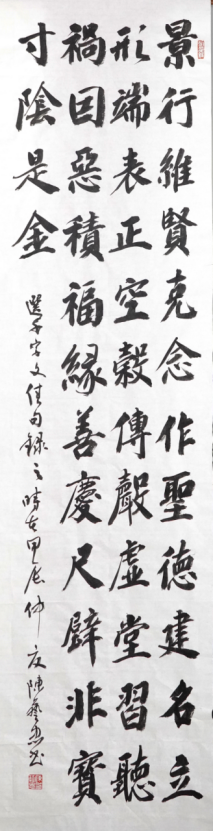 景行維賢克念作聖德建名立
形端表正空穀傳聲虛堂習聽
禍因惡積福緣善慶尺璧非寶
寸陰是金
選千字文佳句錄之時在甲辰仲夏陳藝書